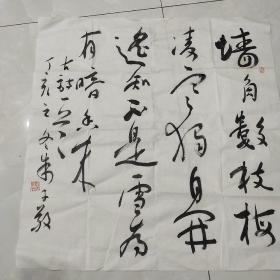 墙角数枝梅
凌寒独自开
遥知不是雪为
有暗香来
古诗一首
丁亥之冬朱子敬